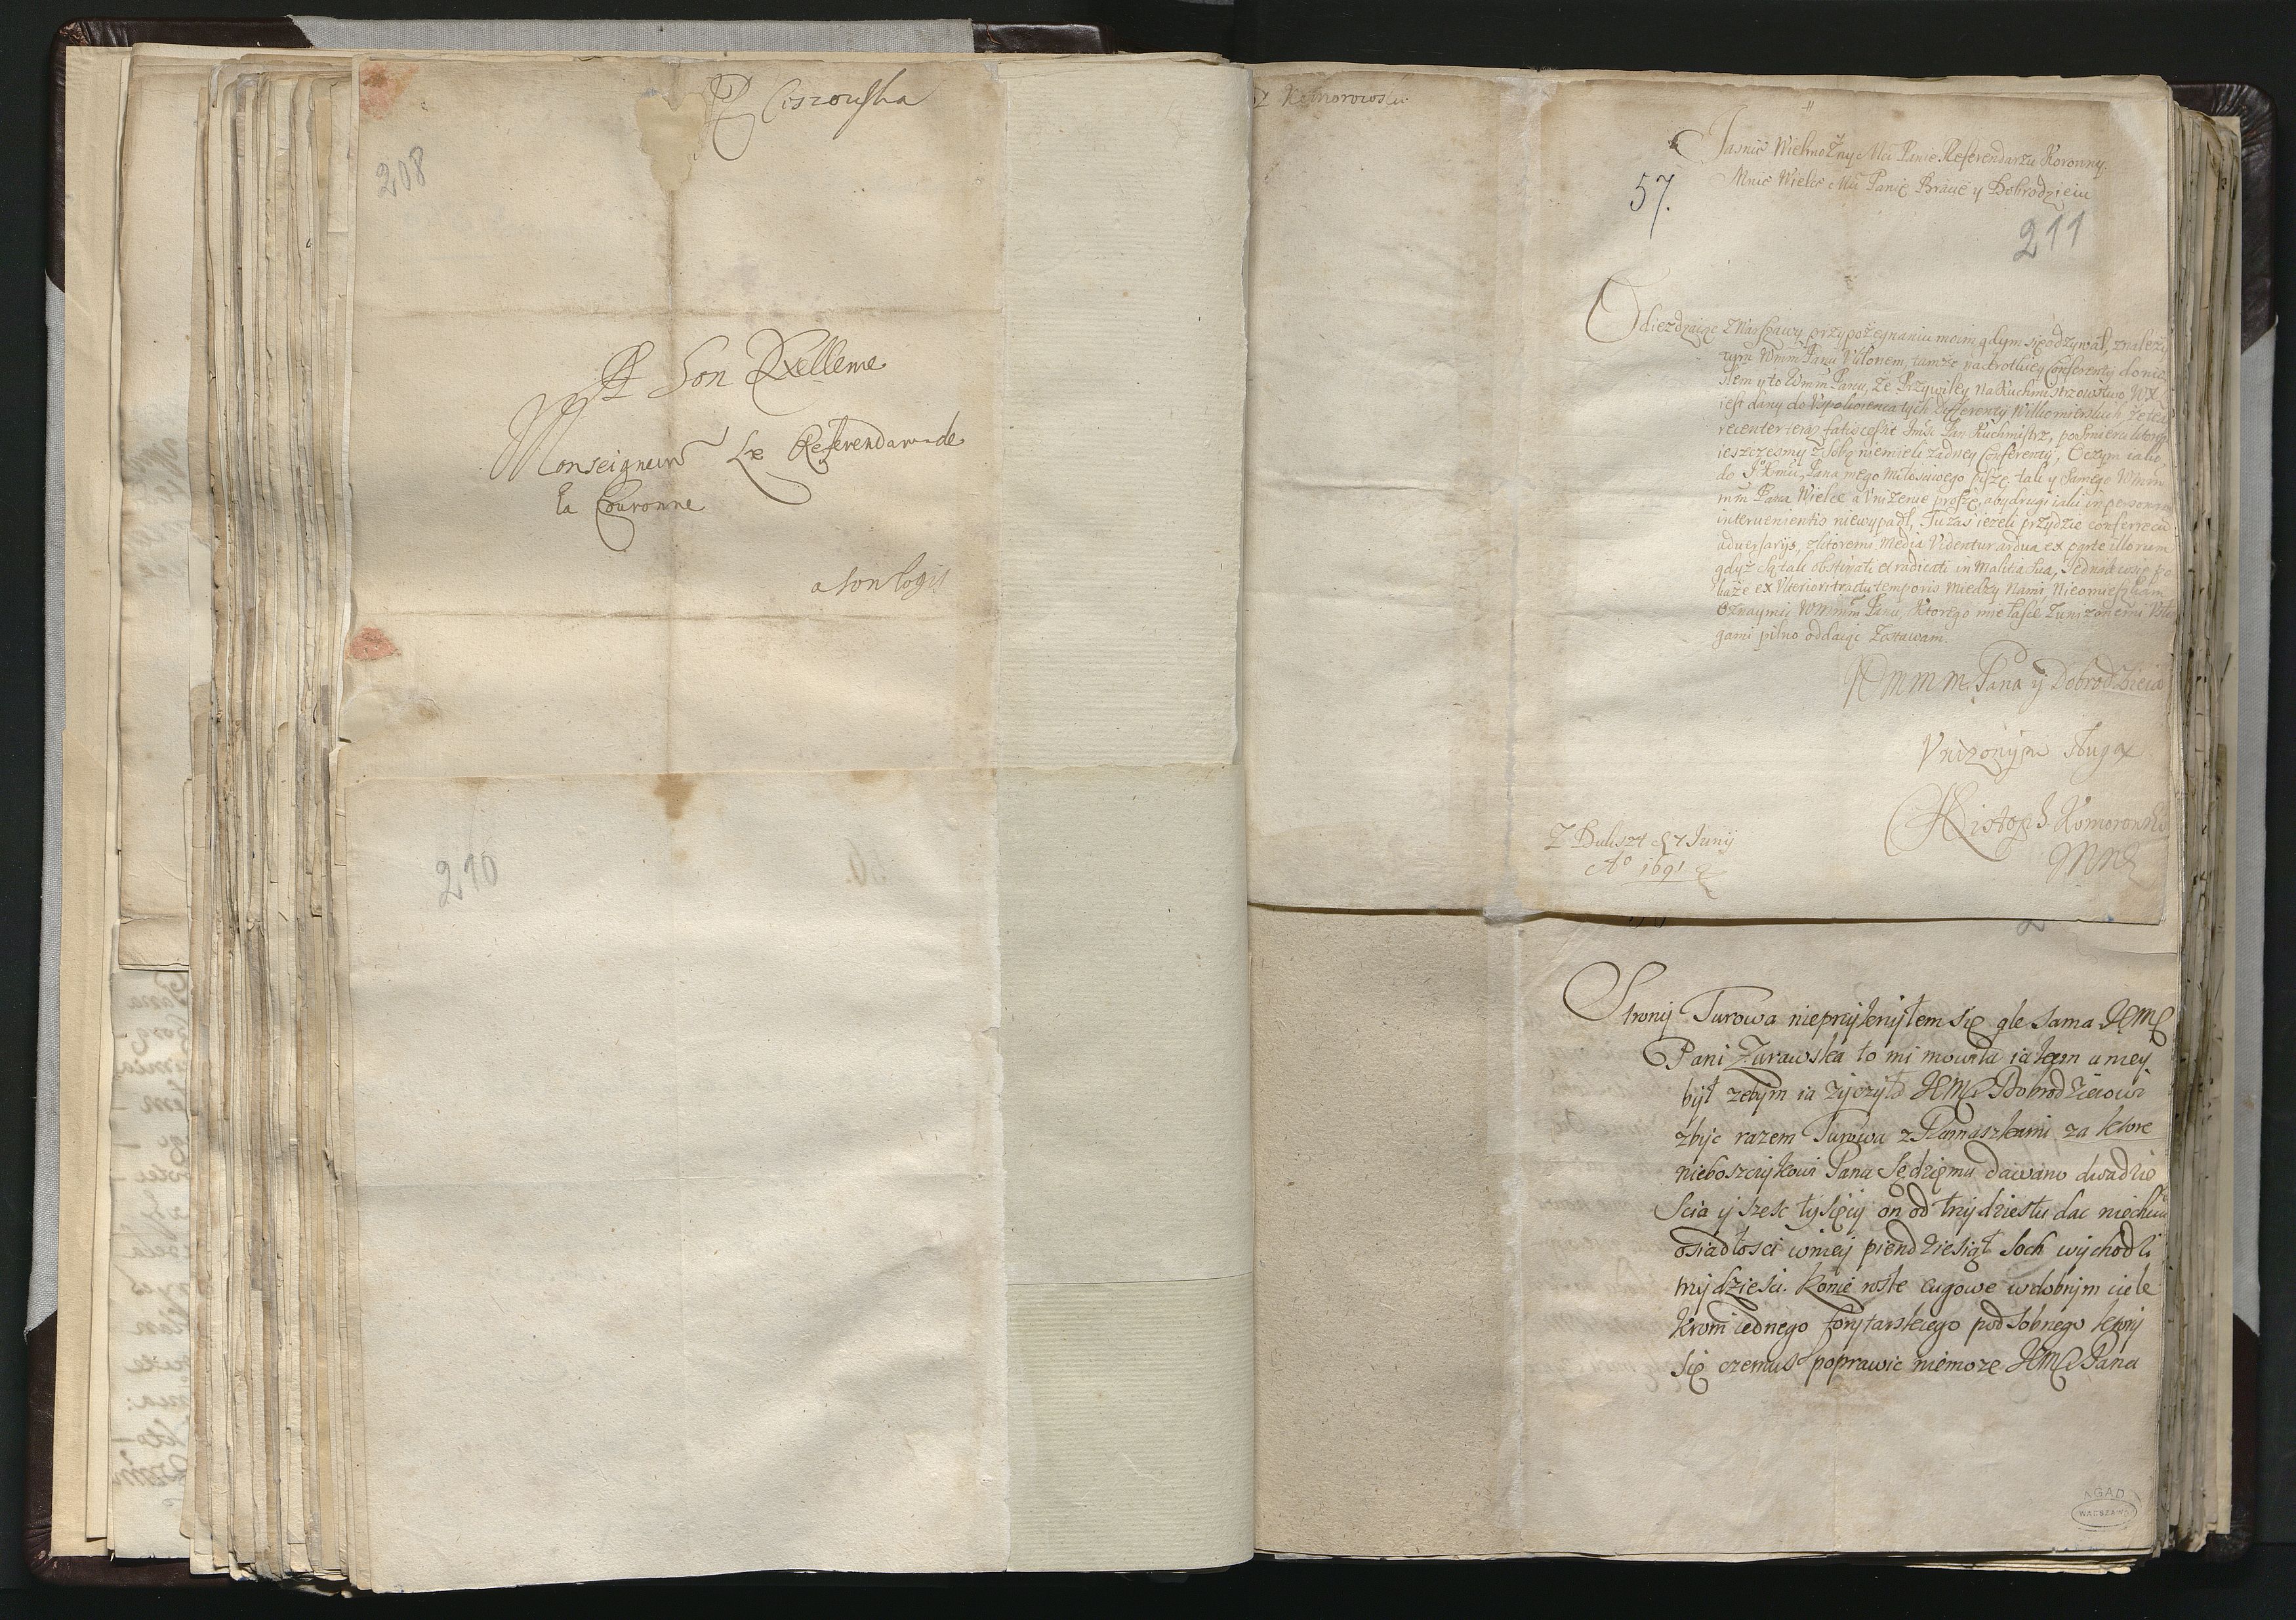 P Ciszowska
208
A Son Exellence
Monseigneur Le Referendar de
la Couronne
a son logis
210
57.
Jasnie Wielmożny Mći Panie Referendarzu Koronny,
Mnie Wielce Mći Panie Bracie y Dobrodzieiu
211
Odiezdzaiąc z Warszawy przy pożegnaniu moim gdym się odzywał, z należy
tym Wmm Panu Vkłonem, tamże na krotkiey Conferenty donio
słem y to Wmm Panu, że Przywiley na Kuchmistrzowstwo WX
iest dany do Vspokoienia tych differenty Wilkomierskich, że tedy
recenter teraz fatis cessit Jmć Pan Kuchmistrz, po śmierci ktorego
ieszczesmy z sobą niemieli żadney Conferenty, O czym iako
do JKMći Pana mego Miłościwego piszę, tak y Samego Wmm
mm Pana Wielce a Vniżenie proszę, aby drugi iaki in personam
intervenientis niewypadł, Tu zas ieżeli przydzie conferre cum
adversarijs, z ktoremi Media Videntur ardua ex parte illorum
gdyż są tak obstinati et radicati in Malitia sua, Jednak co się po
każe ex Vlteriori tractu temporis między Nami, Nieomieszkam
Oznaymić Wmmm Panu, Ktorego mie łasce z uniżonemi Vsłu
gami pilno oddaiąc Zostawam.
Wmmm. Pana y Dobrodzieia
Vniżonym sługą
Kistoph Komorowski
Z 7 Junij
Aº 1691
Strony Turowa nieprzysłyszyłem się ale sama JEMć
Pani Żurawska to mi mowiła iakem u niey
był zebym ia życzył JEMć Dobrodzieiowi
zbyc razem Turowa z Rumaszkami za ktore
nieboszczykowi Panu Sędziemu dawano dwadzie
scia y szesc tysięcy on od trzydziestu dac niechciał
osiadłosci wniey piendziesiąt Soch wychodzi
trzydziesci. Konie rosłe cugowe w dobrym ciele
krom iednego forytarskiego podsobnego ktory
się czemus poprawic niemoze JEMć Pana
AGAD
WARSZAWA